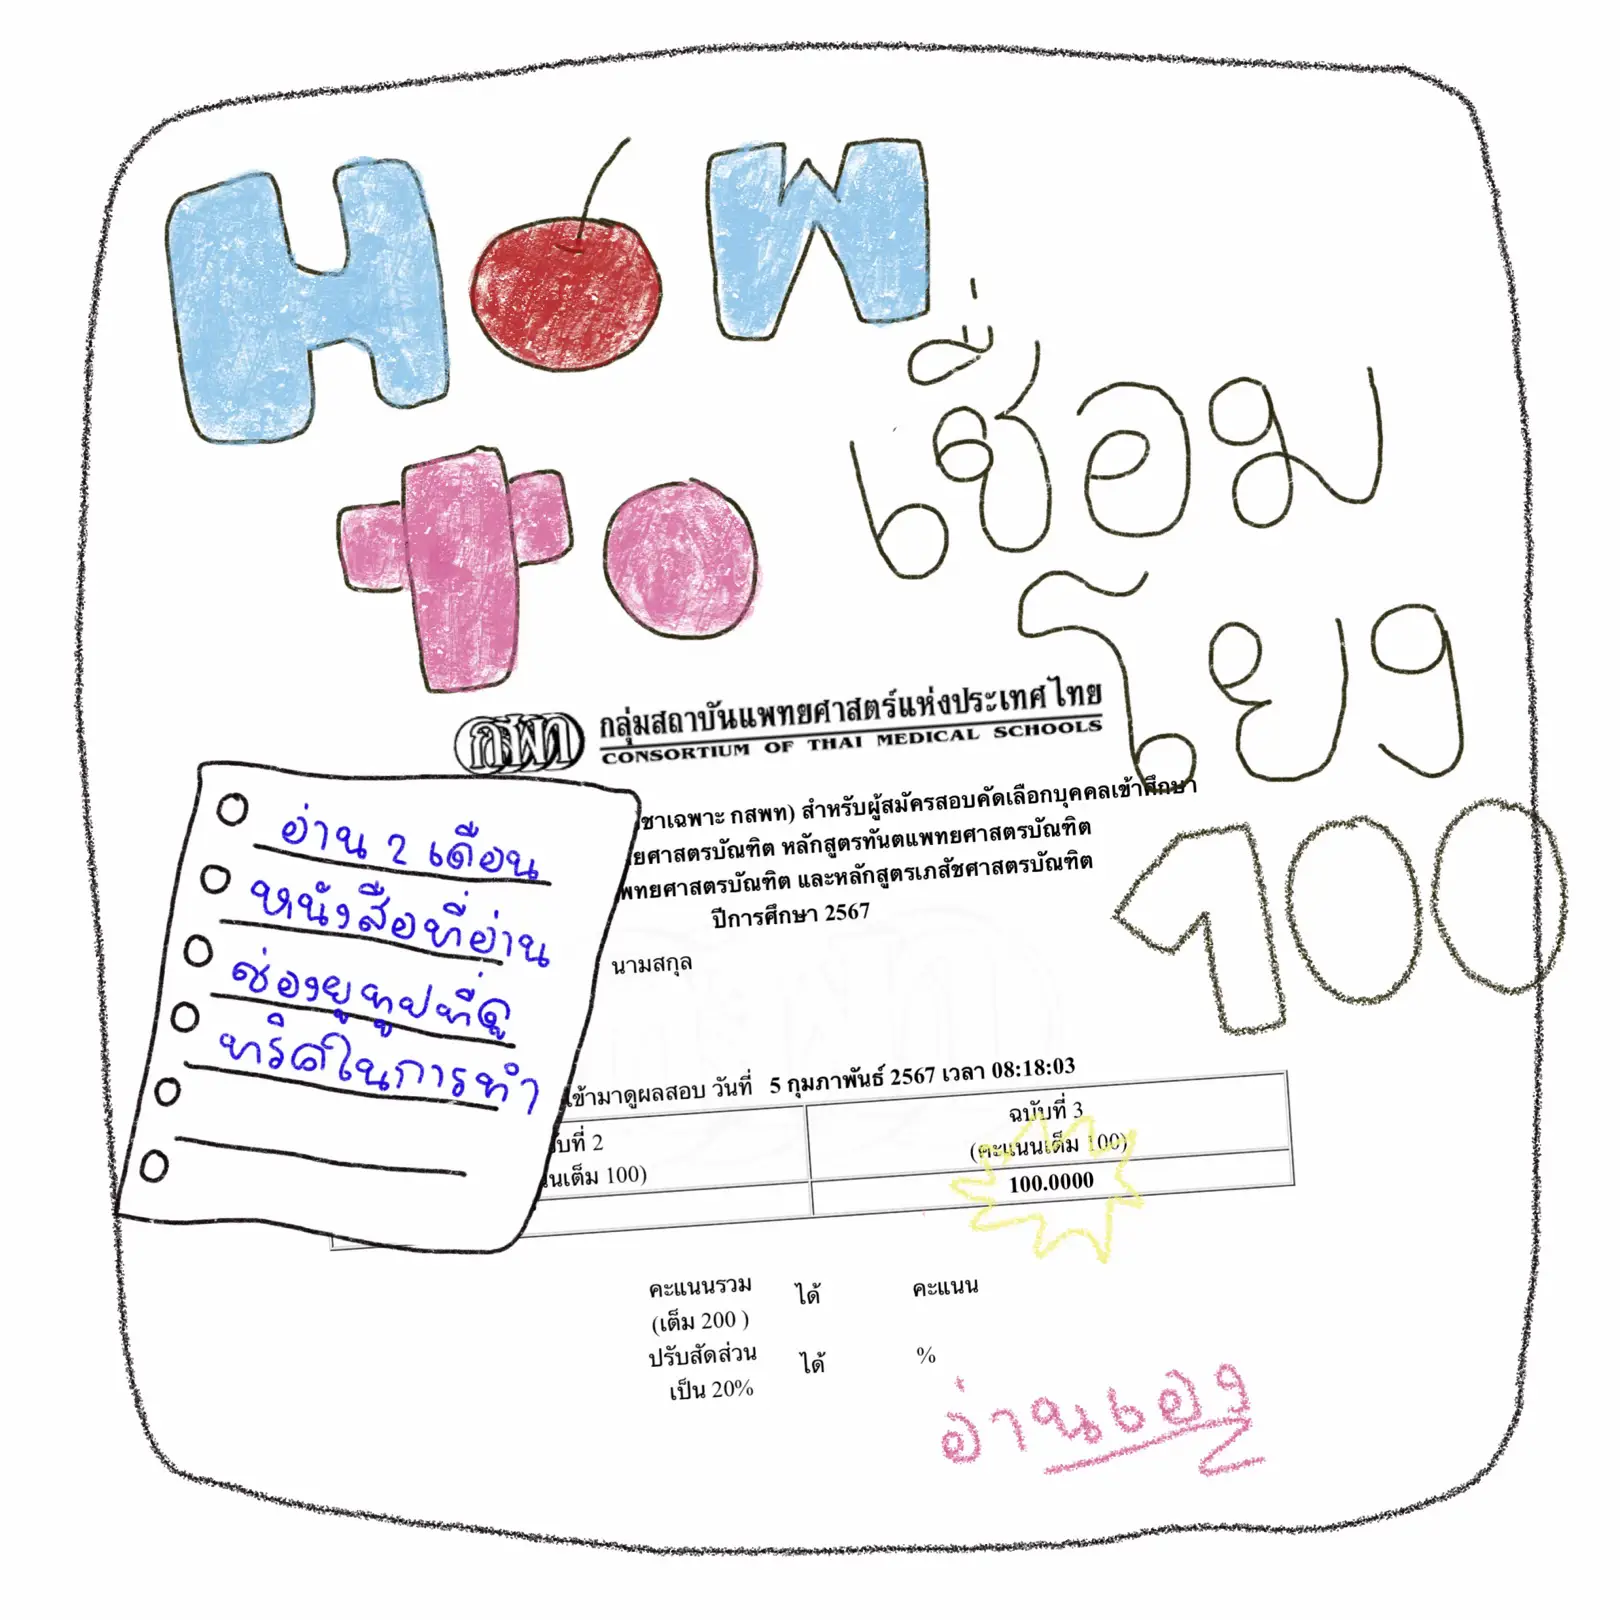 How
to
เชื่อม
โยง
100
กสพท
กลุ่มสถาบันแพทยศาสตร์แห่งประเทศไทย
CONSORTIUM OF THAI MEDICAL SCHOOLS
ชาเฉพาะ กสพท) สำหรับผู้สมัครสอบคัดเลือกบุคคลเข้าศึกษา
ยศาสตรบัณฑิต หลักสูตรทันตแพทยศาสตรบัณฑิต
พทยศาสตรบัณฑิต และหลักสูตรเภสัชศาสตรบัณฑิต
ปีการศึกษา 2567
นามสกุล
อ่าน 2 เดือน
หนังสือที่อ่าน
ช่องยูทูปที่ดู
ทริคในการทำ
เข้ามาดูผลสอบ วันที่ 5 กุมภาพันธ์ 2567 เวลา 08:18:03
บที่ 2
นเต็ม 100)
ฉบับที่ 3
(คะแนนเต็ม 100)
100.0000
คะแนนรวม ได้ คะแนน
(เต็ม 200 )
ปรับสัดส่วน ได้ %
เป็น 20%
อ่านเอง